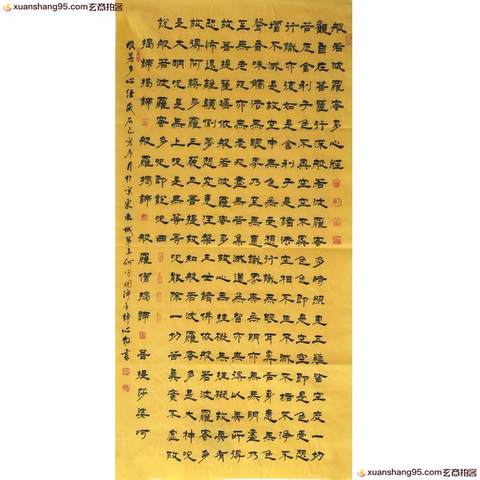 般若波羅蜜多心經
觀自在菩薩行深般若波羅蜜多時照見五蘊皆空度一切
苦厄舍利子色不異空空不異色色即是空空即是色受想
行識亦復如是舍利子是諸法空相不生不滅不垢不淨不
增不減是故空中無色無受想行識無眼耳鼻舌身意無色
聲香味觸法無眼界乃至無意識界無無明亦無無明盡乃
至無老死亦無老死盡無苦集滅道無智亦無得以無所得
故菩提薩埵依般若波羅蜜多故心無罣礙無罣礙故無有
恐怖遠離顛倒夢想究竟涅槃三世諸佛依般若波羅蜜多
故得阿耨多羅三藐三菩提故知般若波羅蜜多是大神咒
是大明咒是無上咒是無等等咒能除一切苦真實不虛故
說般若波羅蜜多咒即說咒曰
揭諦揭諦 般羅揭諦 般羅僧揭諦 菩提莎婆呵
xuanshang95.com玄商拍客
xuanshang95.com玄商拍客
xuanshang95.com玄商拍客
xuanshang95.com玄商拍客